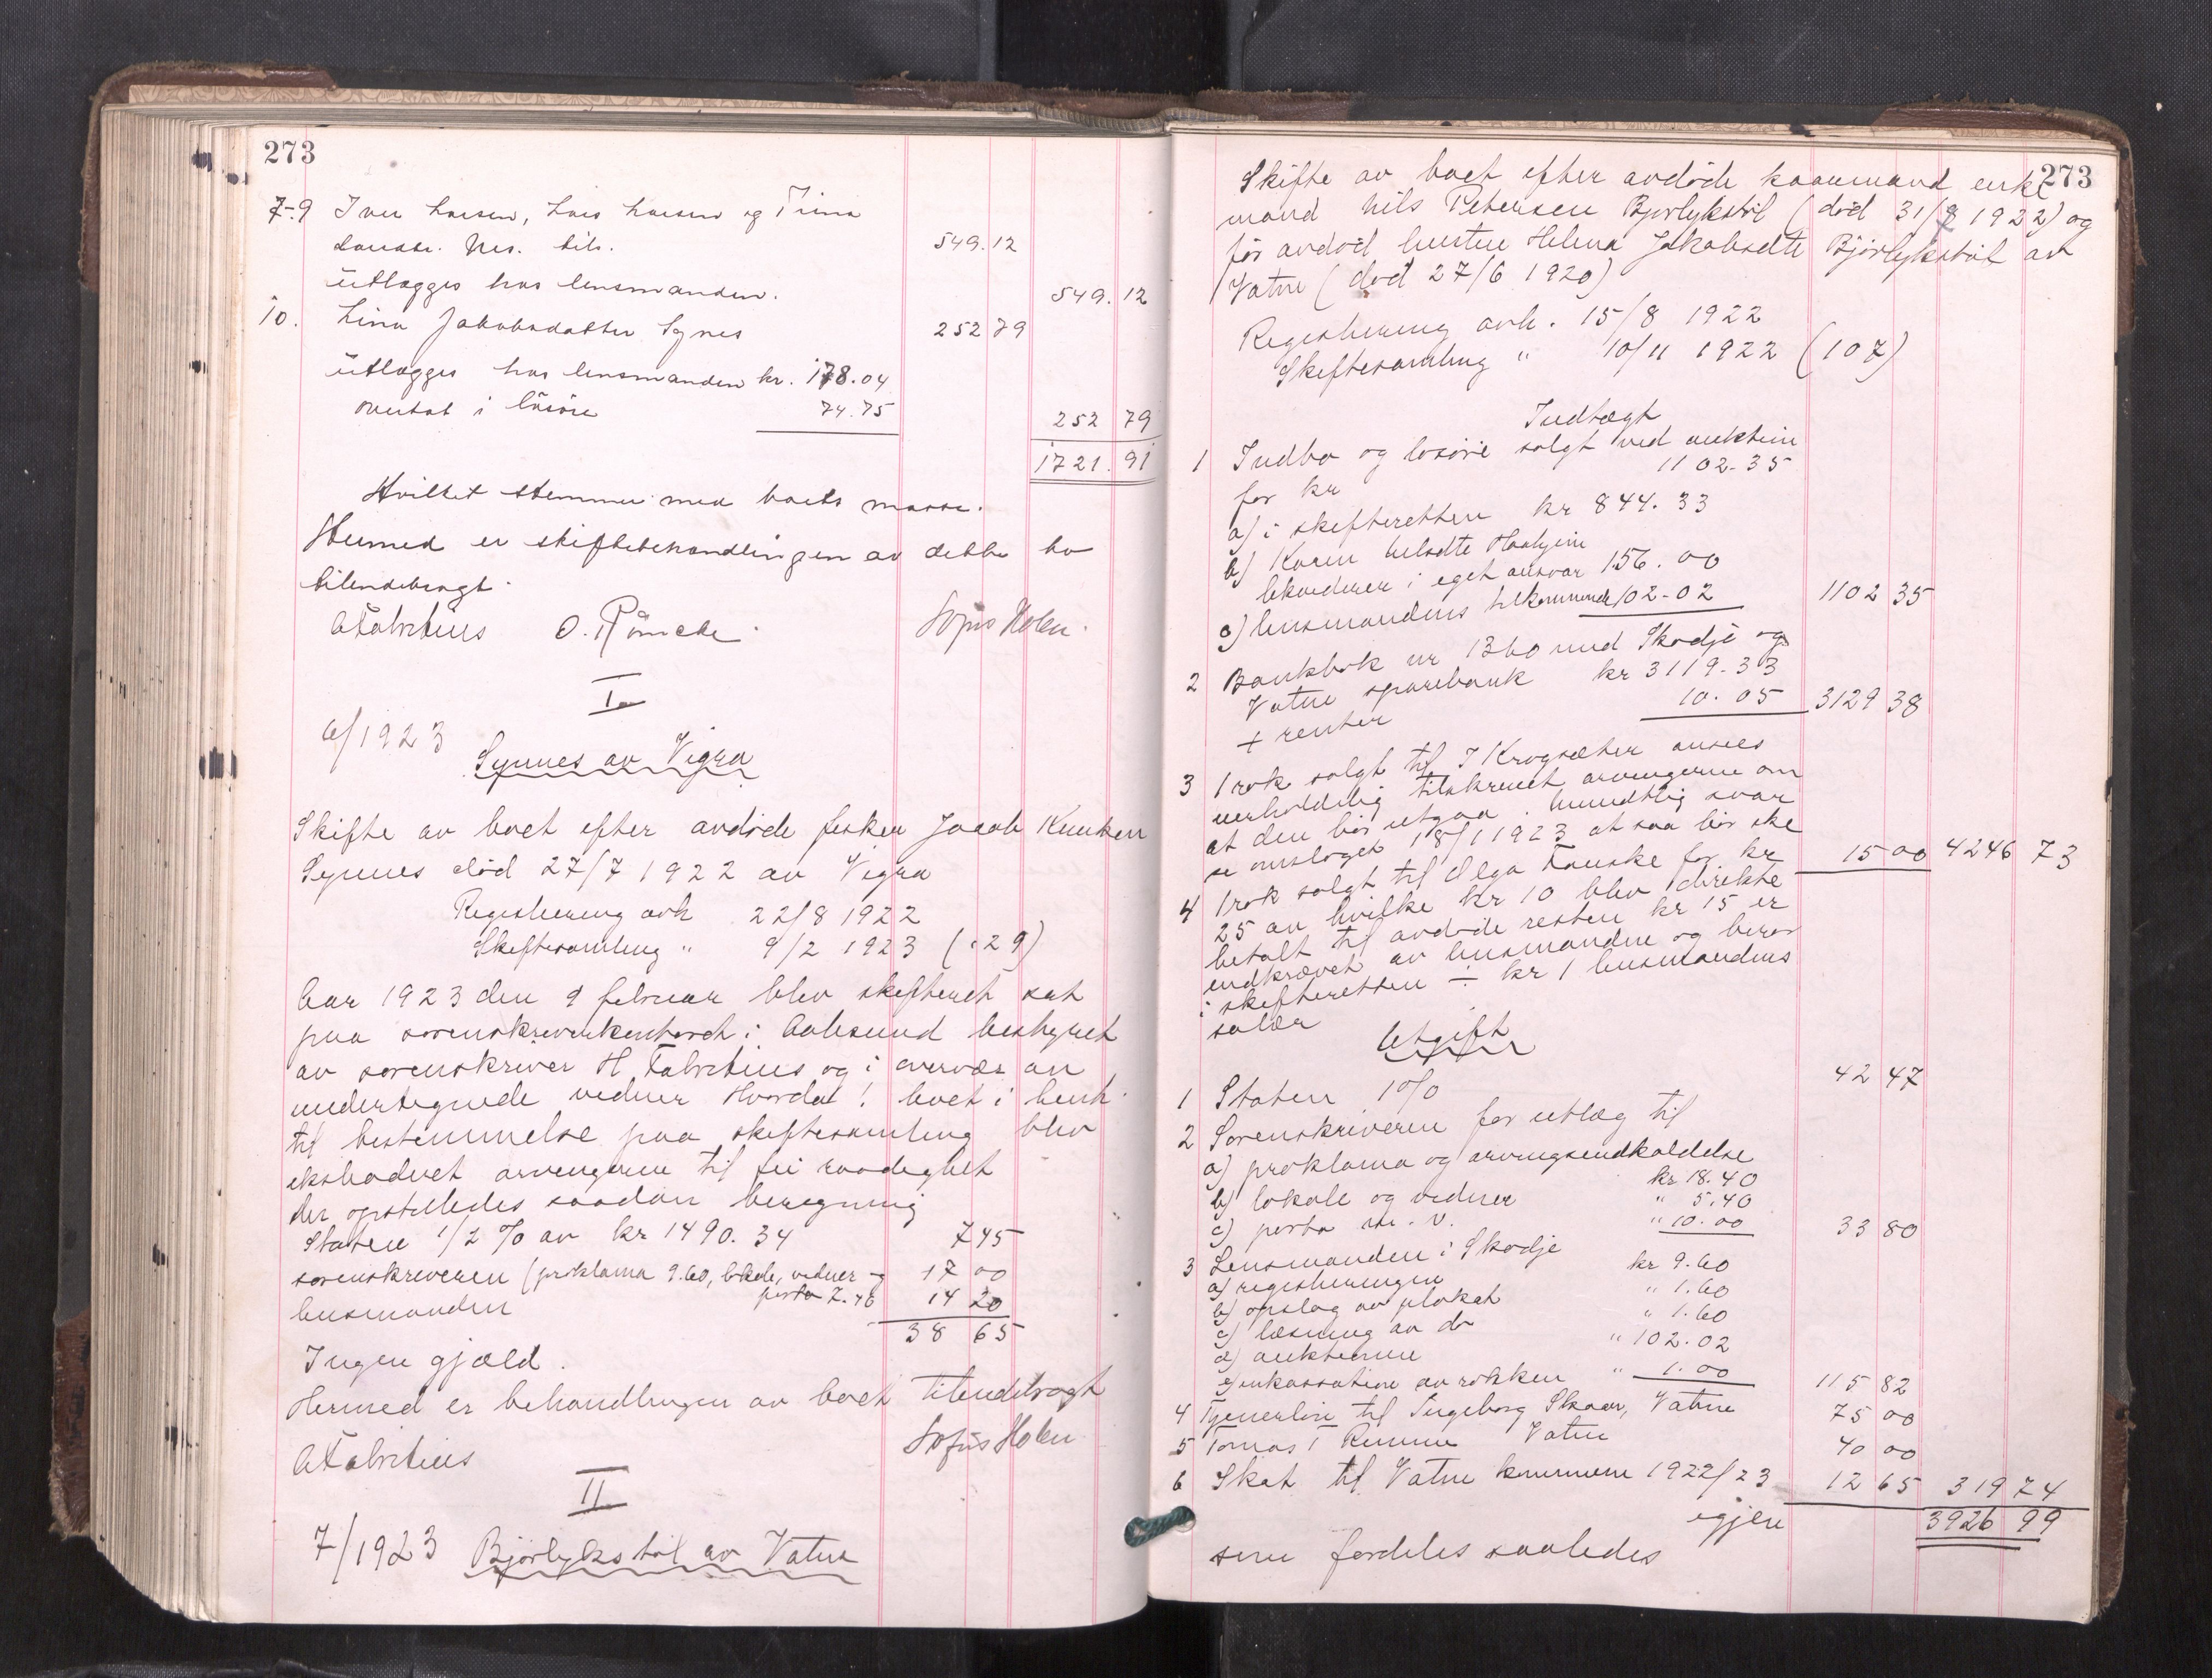 273
7-9 Iver Larsen, Lars Larsen og Trina
Larsdtr. Nes. tils. 549.12
utlægges hos lensmanden. 549.12
10. Lina Jakobsdatter Synes 252 79
utlægges hos lensmanden kr. 178.04
overtat i løsøre 74.75 252 79
1721.91
Hvilket stemmer med boets masse.
Hermed er skiftebehandlingen av dette bo
tilendebragt.
AFabritius O. Sofus Holen.
I
6/1923
Synnes av Vigra
Skifte av boet efter avdøde fisker Jacob Knutsen
Synnes død 27/7 1922 av Vigra
Registrering avh 22/8 1922
Skiftesamling " 9/2 1923 (29)
Aar 1923 den 9 februar blev skifteret sat
paa sorenskriverkontoret i Aalesund bestyret
av sorenskriver H Fabritius og i overvær av
undertegnede vidner Hvorda! boet i henh.
til bestemmelse paa skiftesamling blev
ekstradert arvingerne til fri raadighet
der opstilledes saadan beregning
Staten 1/2 % av kr 1490.34 7 45
sorenskriveren (proklama 9.60, lokale, vidner og 17 00
porto 7.40
lensmanden 14 20
38 65
Ingen gjæld.
Hermed er behandlingen av boet tilendebragt
AFabritius Sofus Holen
II
7/1923 Bjørlykstøl av Vatne
273
Skifte av boet efter avdøde kaarmand enke
mand Nils Petersen Bjørlykstøl (død 31/8 1922) og
før avdød hustru Helena Jakobsdtr Bjørlykstøl av
Vatne (død 27/6 1920)
Registrering avh. 15/8 1922
Skiftesamling " 10/11 1922 (107)
Indtægt
1 Indbo og løsøre solgt ved auktion
for kr 1102-35
a) i skifteretten kr 844.33
b) Karen Nilsdtr
kvitterer i eget ansvar 156.00
c) lensmandens tilkommende 102-02 1102 35
2 Bankbok nr 1360 med Skodje og
Vatne sparebank kr 3119-33
+ renter 10.05 3129 38
3 1 rok solgt til J Krogsæter ansees
uerholdelig tilskrevet arvingerne om
at den bør utgaa. mundtlig svar
se omslaget 18/1 1923 at saa bør ske
4 1 rok solgt til Olga Fauske for kr 15 00 4246 73
25 av hvilke kr 10 blev direkte
betalt til avdøde resten kr 15 er
indkrævet av lensmanden og beror
i skifteretten ÷ kr 1 lensmandens
salær
Utgift
1 Staten 1% 42 47
2 Sorenskriveren for utlæg til
a) proklama og arvingsindkaldelse
kr 18.40
b) lokale og vidner " 5.40
c) porto m.v. " 10.00 33 80
3 Lensmanden i Skodje
a) registreringen kr 9.60
b) opslag av plakat " 1.60
c) læsning av do " 1.60
d) auktionen " 102.02
e) inkassation av rokken " 1.00 115 82
4 Tjenerløn til Ingeborg Skaar, Vatne 75 00
5 Tomas T Vatne 40 00
6 Skat til Vatne kommune 1922/23 12 65 319 74
igjen 3926 99
som fordeles saaledes